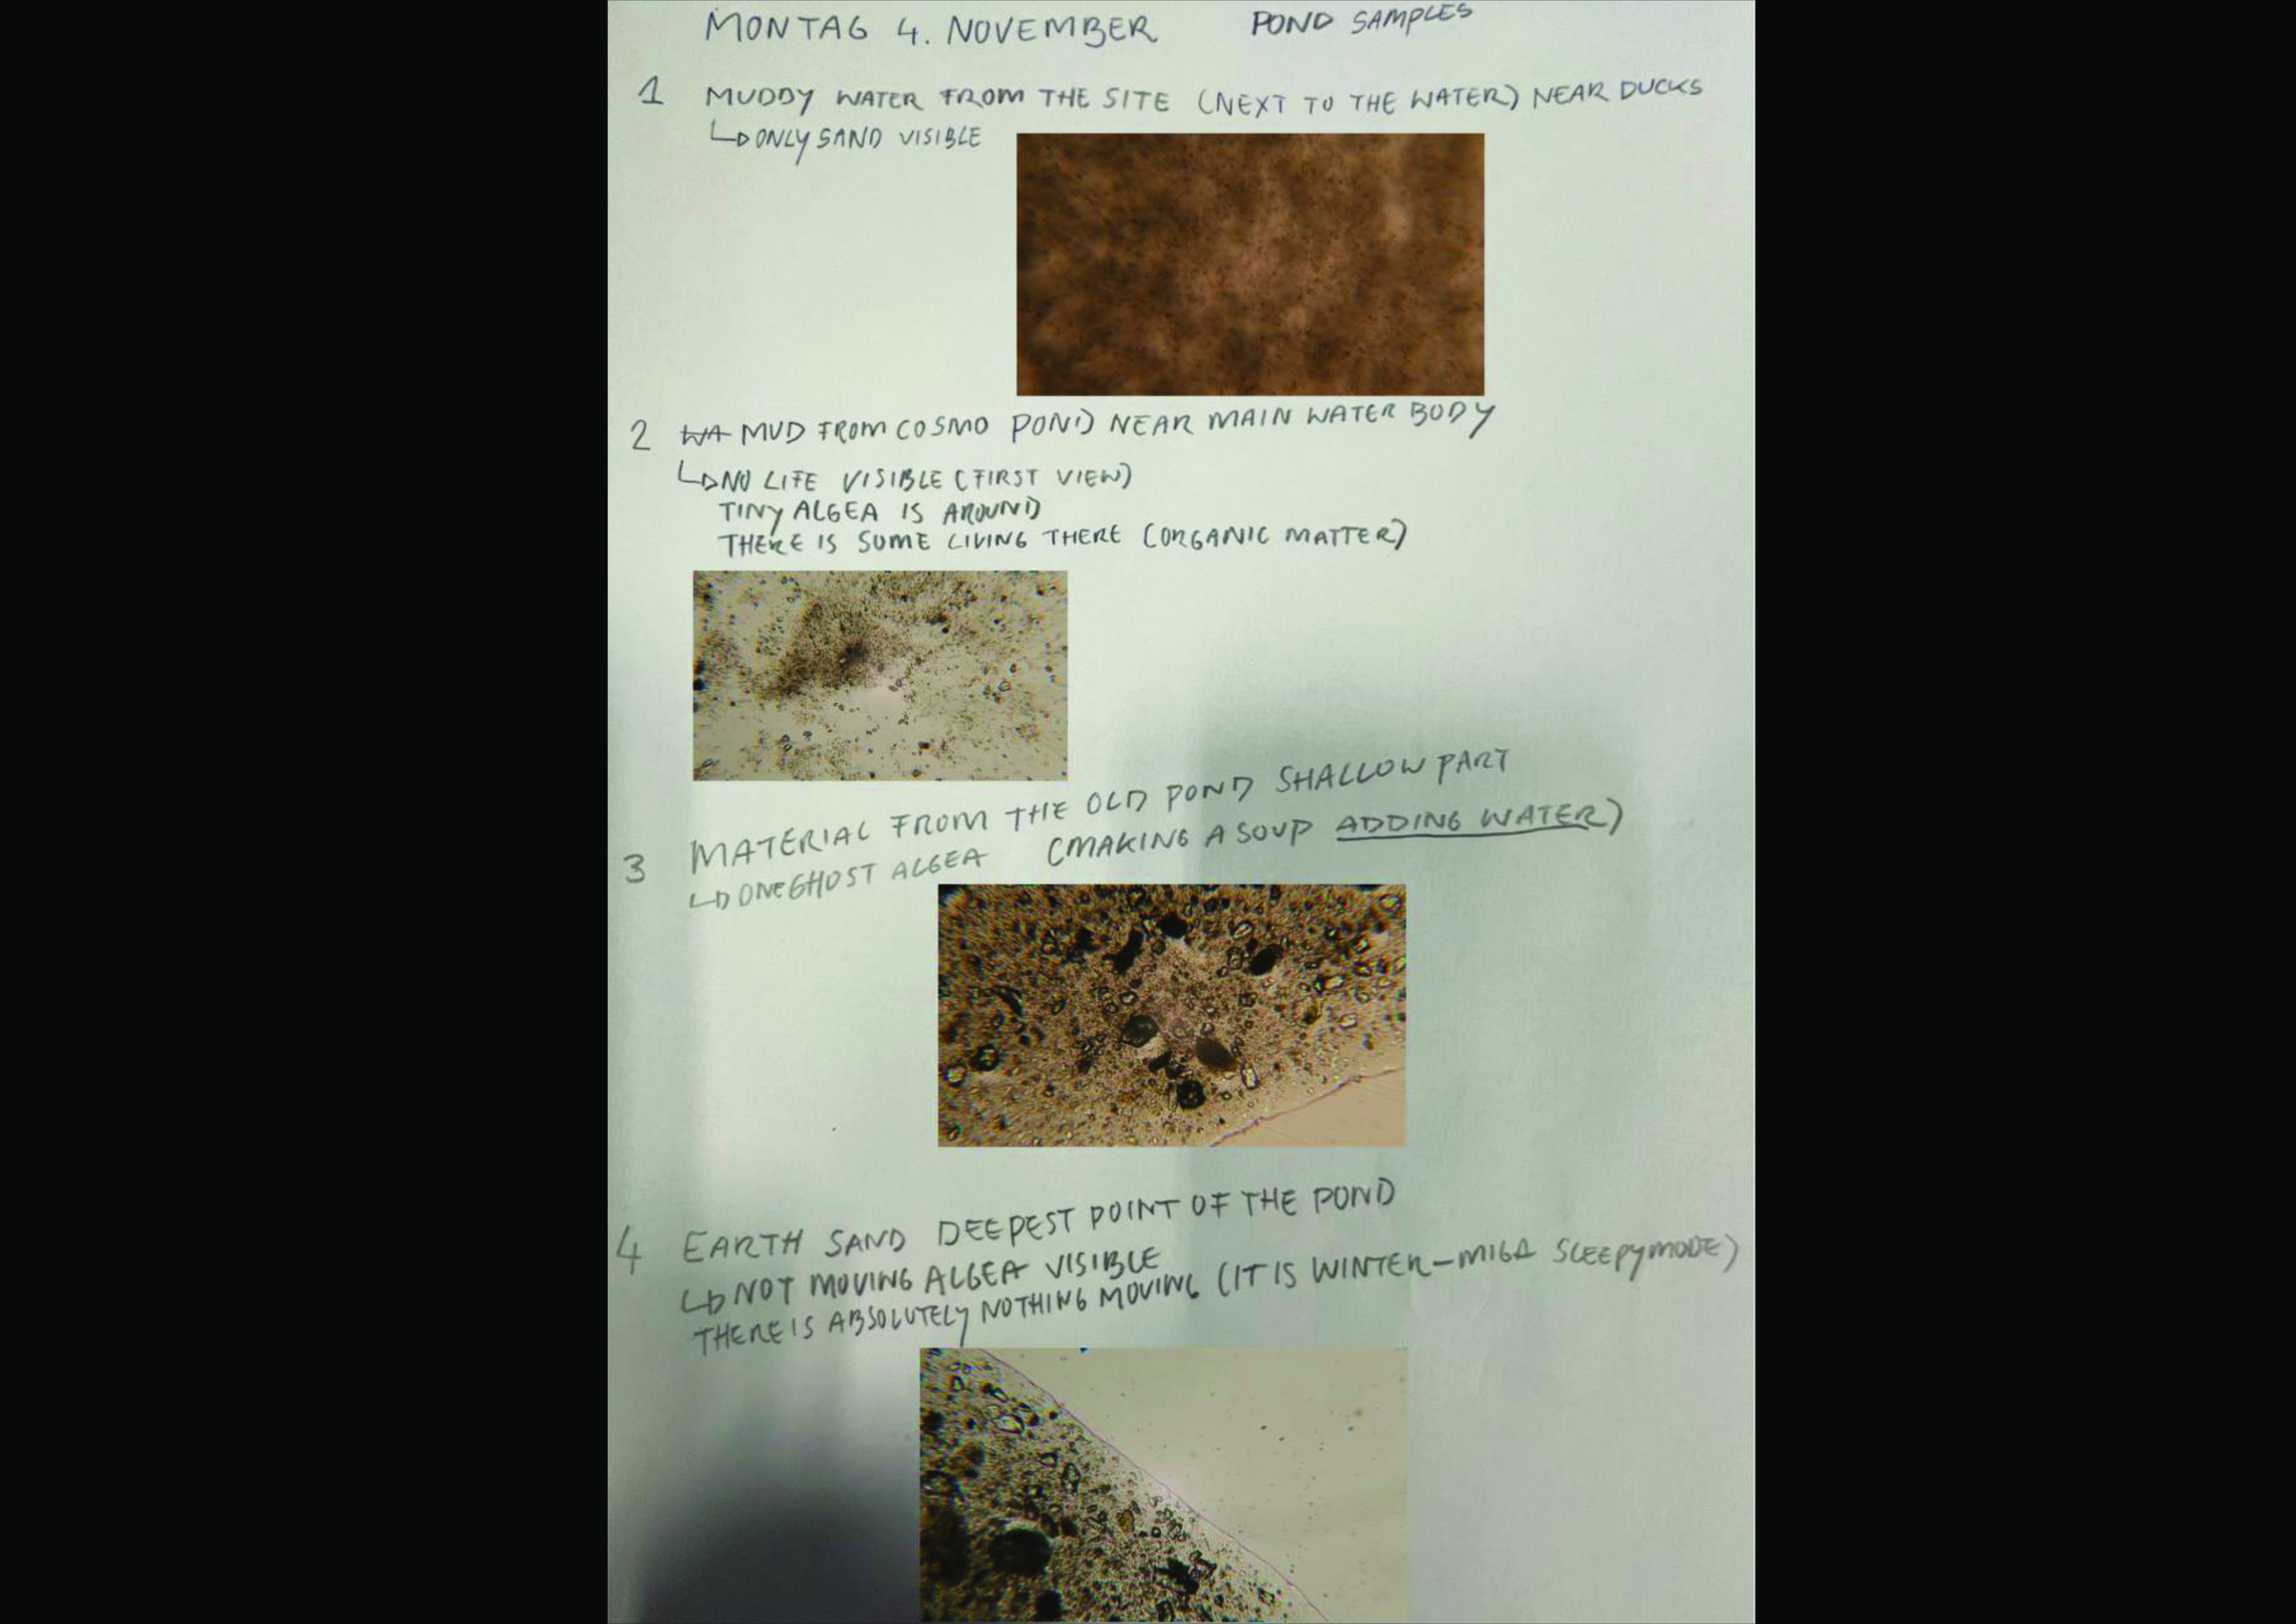 MONTAG 4. NOVEMBER POND SAMPLES
1 MUDDY WATER FROM THE SITE (NEXT TO THE WATER) NEAR DUCKS
↳ ONLY SAND VISIBLE
2 WA MUD FROM COSMO POND NEAR MAIN WATER BODY
↳ NO LIFE VISIBLE (FIRST VIEW)
TINY ALGEA IS AROUND
THERE IS SOME LIVING THERE (ORGANIC MATTER)
3 MATERIAL FROM THE OLD POND SHALLOW PART
↳ ONE GHOST ALGEA (MAKING A SOUP ADDING WATER)
4 EARTH SAND DEEPEST POINT OF THE POND
↳ NOT MOVING ALGEA VISIBLE
THERE IS ABSOLUTELY NOTHING MOVING (IT IS WINTER - SLEEPYMODE)